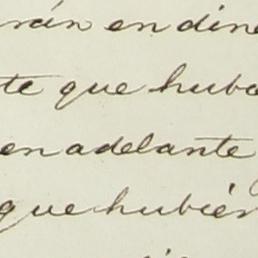 rán en dine
te que hubo
en adelante
que hubier